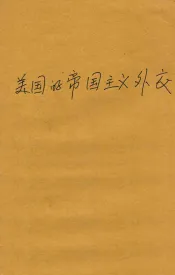 美国的帝国主义外交